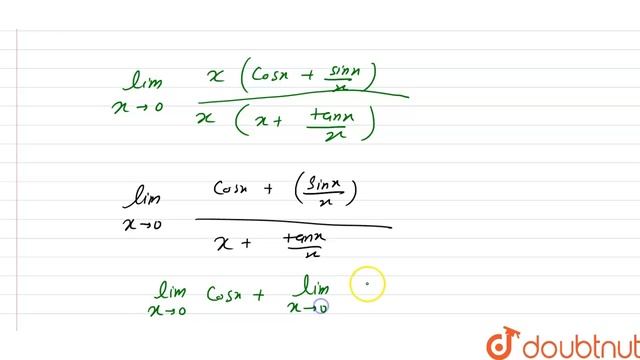 lim x→0 x (cosx + sinx/x) / x (x + tanx/x)
lim x→0 cosx + (sinx/x) / x + tanx/x
lim x→0 cosx + lim x→0
doubtnut